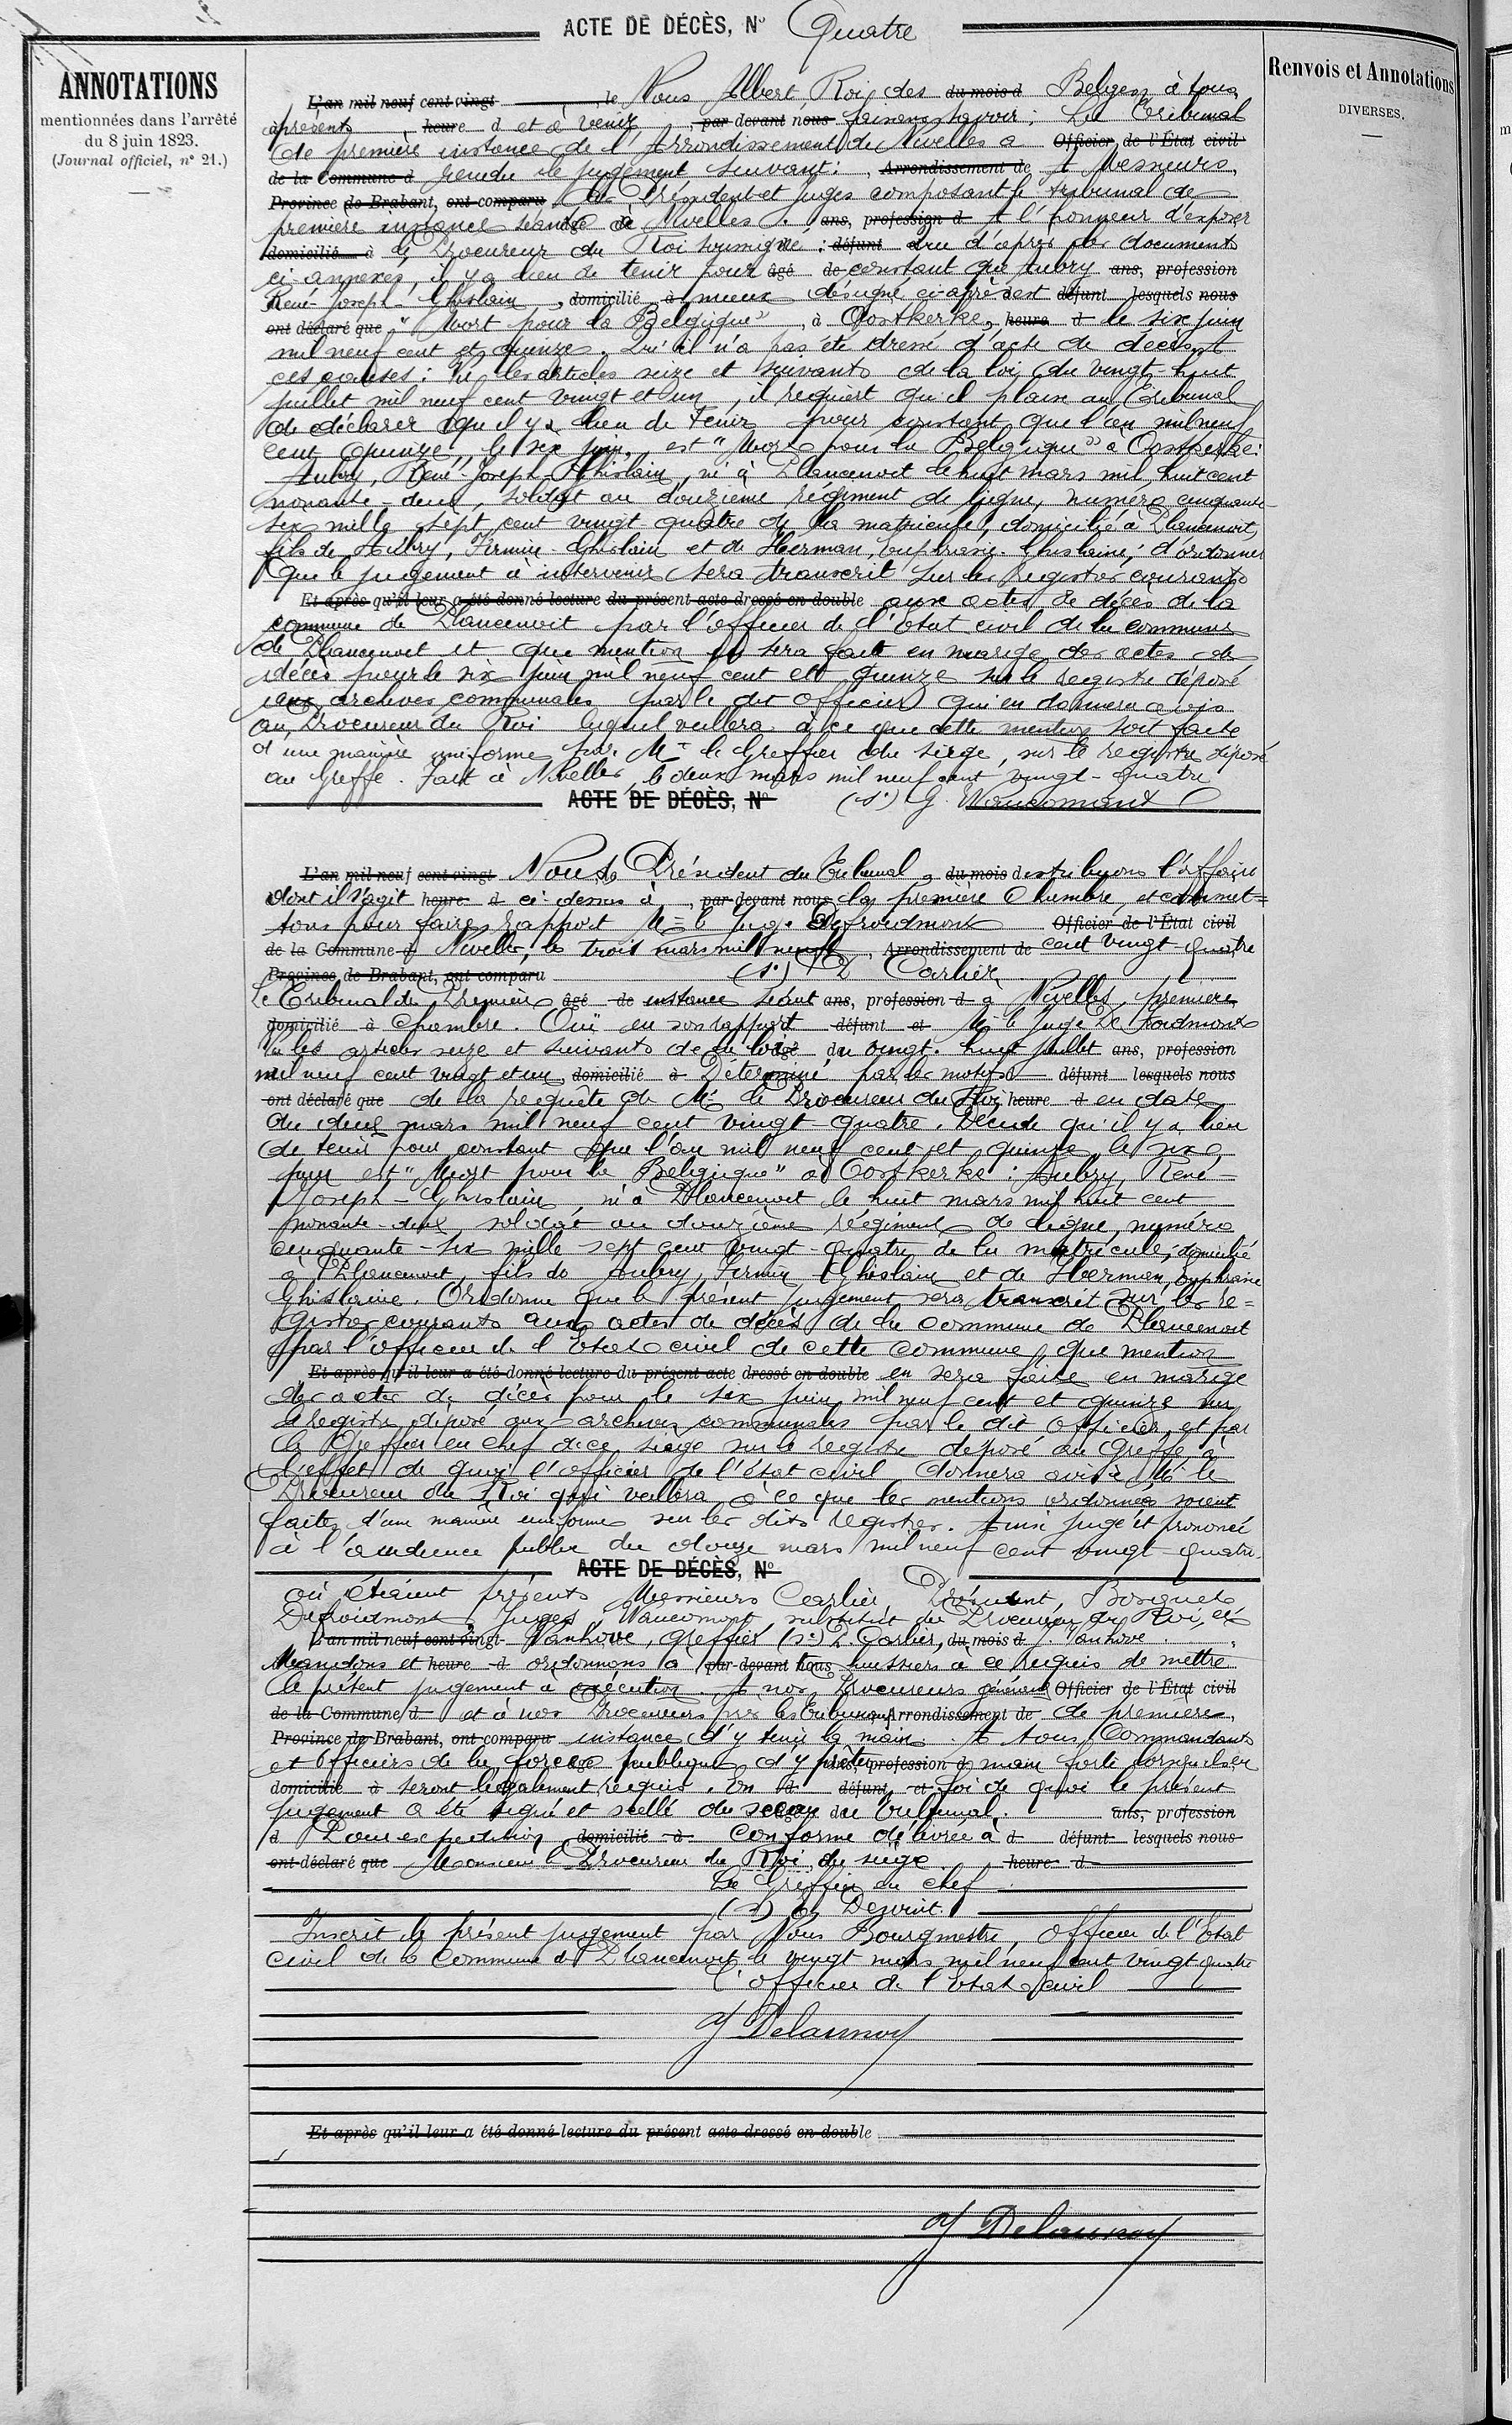 ACTE DE DÉCÈS, N° Quatre
ANNOTATIONS
mentionnées dans l'arrêté
du 8 juin 1823.
(Journal officiel, n° 21.)
Renvois et Annotations
DIVERSES.
L'an mil neuf cent vingt , le Nous Albert, Roi des du mois d Belges, à tous
présents heure d et à venir , par devant nous faisons savoir : Le Tribunal
de première instance de l'Arrondissement de Nivelles a Officier de l'État civil
de la Commune d rendu le jugement suivant : , Arrondissement de A Messieurs,
Province de Brabant, ont comparu les Président et Juges composant le tribunal de
première instance séant à Nivelles. ans, profession d A l'honneur d'exposer
domicilié à le Procureur du Roi soussigné : défunt que d'après les documents
ci-annexés, il y a lieu de tenir pour âgé de constant que Aubry ans, profession
René-Joseph-Ghislain , domicilié à mieux désigné ci-après est défunt lesquels nous
ont déclaré que "Mort pour la Belgique" , à Oostkerke, heure d le six juin
mil neuf cent et quinze. Qu'il n'a pas été dressé d'acte de décès. A
ces causes : Vu les articles seize et suivants de la loi du vingt-huit
juillet mil neuf cent vingt et un, il requiert qu'il plaise au Tribunal
de déclarer qu'il y a lieu de tenir pour constant que l'an mil neuf
cent quinze, le six juin, est "Mort pour la Belgique" à Oostkerke :
Aubry, René-Joseph-Ghislain, né à Plancenoit le huit mars mil huit cent
nonante-deux, soldat au douzième régiment de ligne, numéro cinquante-
six mille sept cent vingt-quatre de la matricule, domicilié à Plancenoit,
fils de Aubry, Firmin-Ghislain et de Herman, Euphrasie-Ghislaine ; d'ordonner
que le jugement à intervenir sera transcrit sur les registres courants
Et après qu'il leur a été donné lecture du présent acte dressé en double aux actes de décès de la
commune de Plancenoit par l'officier de l'Etat civil de la commune
de Plancenoit et que mention en sera faite en marge des actes de
décès pour le six juin mil neuf cent et quinze sur le registre déposé
aux archives communales par le dit officier qui en donnera avis
au Procureur du Roi lequel veillera à ce que cette mention soit faite
d'une manière uniforme par Mr le Greffier du siège, sur le registre déposé
au Greffe. Fait à Nivelles, le deux mars mil neuf cent vingt-quatre
ACTE DE DÉCÈS, N° (s.) G. Waucomont
L'an mil neuf cent vingt Nous, Président du Tribunal, du mois distribuons l'affaire
dont il s'agit heure d ci-dessus à , par devant nous la première Chambre, et commet=
tons pour faire rapport Mr le Juge Defroidmont Officier de l'État civil
de la Commune d Nivelles, le trois mars mil neuf , Arrondissement de cent vingt-quatre
Province de Brabant, ont comparu (s.) P. Carlier
Le Tribunal de Première âgé de instance séant ans, profession d à Nivelles, première
domicilié à Chambre. Ouï en son rapport défunt et Mr le Juge De Froidmont
Vu les articles seize et suivants de la loi âgé du vingt-huit juillet ans, profession
mil neuf cent vingt et un, domicilié à Déterminé par les motifs défunt lesquels nous
ont déclaré que de la requête de Mr le Procureur du Roi, heure d en date
du deux mars mil neuf cent vingt-quatre. Décide qu'il y a lieu
de tenir pour constant que l'an mil neuf cent et quinze le six
juin est "Mort pour la Belgique" à Oostkerke : Aubry, René-
Joseph-Ghislain, né à Plancenoit le huit mars mil huit cent
nonante-deux, soldat au douzième régiment de ligne, numéro
cinquante-six mille sept cent vingt-quatre de la matricule, domicilié
à Plancenoit, fils de Aubry, Firmin Ghislain et de Herman, Euphrasie
Ghislaine. Ordonne que le présent jugement sera transcrit sur les re=
gistres courants aux actes de décès de la commune de Plancenoit
par l'officier de l'Etat civil de cette commune, que mention
Et après qu'il leur a été donné lecture du présent acte dressé en double en sera faite en marge
des actes de décès pour le six juin mil neuf cent et quinze sur
le registre déposé aux archives communales par le dit officier, et par
le Greffier en chef de ce siège sur le registre déposé au Greffe, à
l'effet de quoi l'officier de l'état civil donnera avis à Mr le
Procureur du Roi qui veillera à ce que les mentions ordonnées soient
faites d'une manière uniforme sur les dits registres. Ainsi jugé et prononcé
à l'audience publique du douze mars mil neuf cent vingt-quatre
ACTE DE DÉCÈS, N°
où étaient présents Messieurs Carlier, Président, Bosquet
Defroidmont, Juges, Waucomont, substitut du Procureur du Roi, et
L'an mil neuf cent vingt Vanhove, Greffier (s.) P. Carlier, du mois d J. Vanhove.
Mandons et heure d ordonnons à par devant tous nous huissiers à ce requis de mettre
le présent jugement à exécution. A nos Procureurs généraux Officier de l'État civil
de la Commune d et à nos Procureurs près les Tribunaux Arrondissement de de première
Province de Brabant, ont comparu instance d'y tenir la main. A tous Commandants
et officiers de la force âgé publique d'y prêter ans, profession d main forte lorsqu'ils en
domicilié à seront légalement requis. En d défunt et foi de quoi le présent
jugement a été signé et scellé du sceau du Tribunal. ans, profession
d Pour expédition domicilié à conforme délivrée à d défunt lesquels nous
ont déclaré que Monsieur le Procureur du Roi du siège. heure d
Le Greffier en chef
Inscrit le présent jugement par Nous Bourgmestre, officier de l'Etat
civil de la Commune de Plancenoit le vingt mars mil neuf cent vingt quatre
L'officier de l'Etat civil
J Delaunoy
Et après qu'il leur a été donné lecture du présent acte dressé en double
J Delaunoy